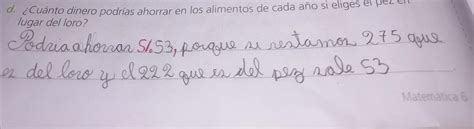 d. ¿Cuánto dinero podrías ahorrar en los alimentos de cada año si eliges el pez en
lugar del loro?
Podria ahorrar S/.53, porque si restamos 275 que
es del loro y el 222 que es del pez sale 53
Matemática 6